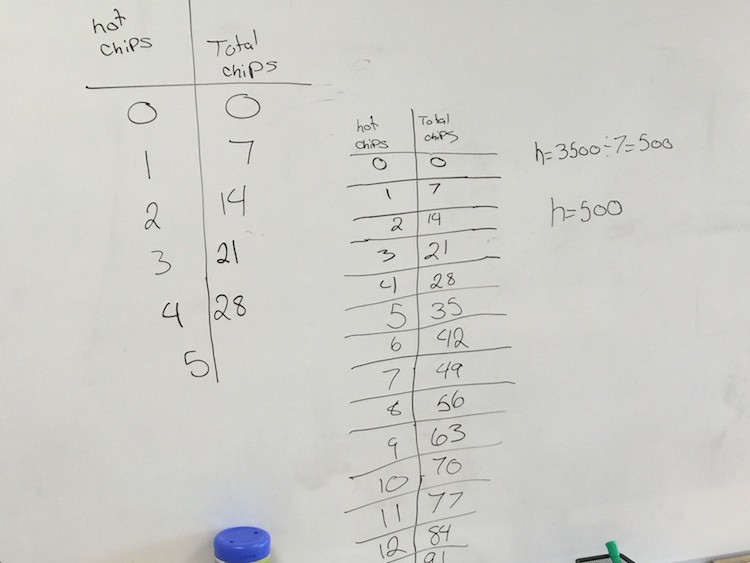 hot
chips
Total
chips
0 0
1 7
2 14
3 21
4 28
5
hot
chips
Total
chips
0 0
1 7
2 14
3 21
4 28
5 35
6 42
7 49
8 56
9 63
10 70
11 77
12 84
91
h=3500÷7=500
h=500